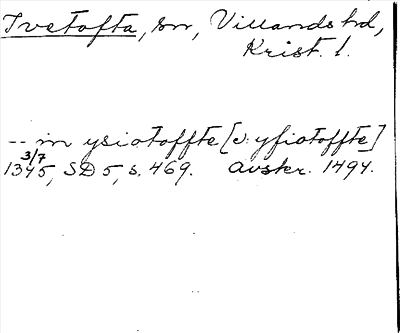 Ivetofta, sn, Villands hd,
Krist. l.
-- in ysiotoffte [v: yfiotoffte]
3/7
1345, SD 5, s. 469. Avskr. 1494.